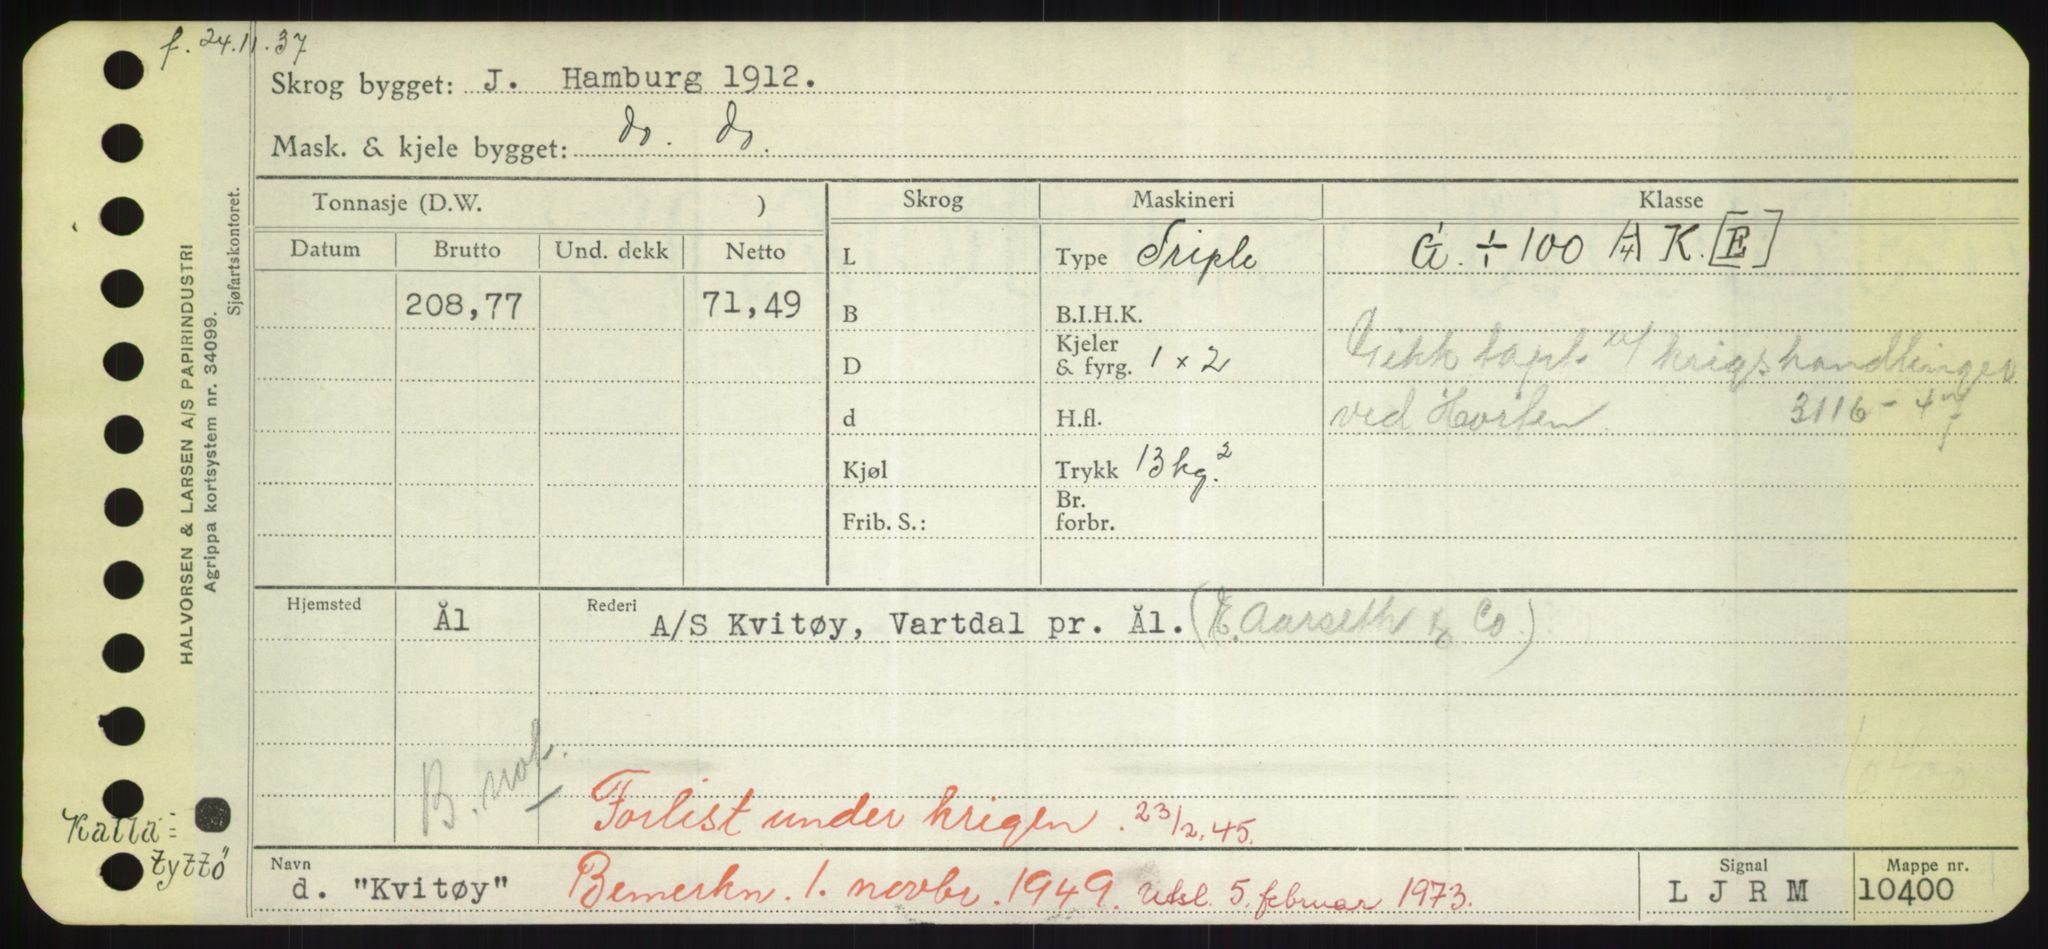 f. 24.11.37
Skrog bygget: J. Hamburg 1912.
Mask. & kjele bygget: do. do.
Tonnasje (D.W. )
Skrog
Maskineri
Klasse
Datum
Brutto
Und. dekk
Netto
L
Type Triple
÷ 100 K. [E]
208,77
71,49
B
B.I.H.K.
Gikk tapt v/ krigshandlinger
D
Kjeler
& fyrg. 1 x 2
d
H.fl.
ved Horten 3116-47
Kjøl
Trykk 13 kg.²
Frib. S.:
Br.
forbr.
Hjemsted
Ål
Rederi
A/S Kvitøy, Vartdal pr. Ål. (E. Aarseth & Co)
B. not.
Forlist under krigen. 23/2.45.
Navn
d. "Kvitøy"
Bemerkn. 1. novbr. 1949. Utsl. 5. februar 1973.
Signal
L J R M
Mappe nr.
10400
HALVORSEN & LARSEN A/S PAPIRINDUSTRI
Agrippa kortsystem nr. 34099.
Sjøfartskontoret.